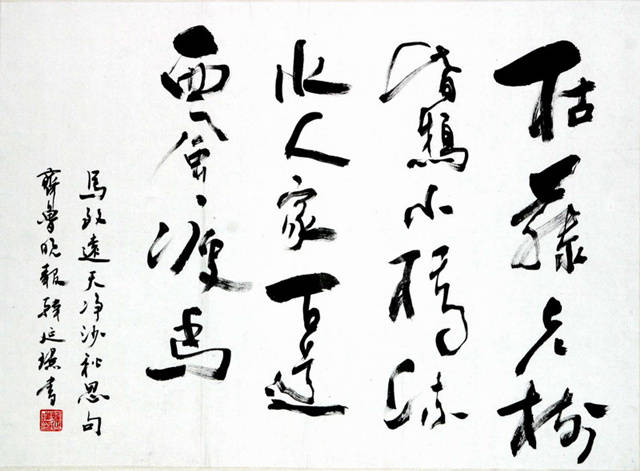 枯藤老樹
昏鴉小橋流
水人家古道
西風瘦馬
馬致遠天净沙秋思句
齊魯晚報韓延書